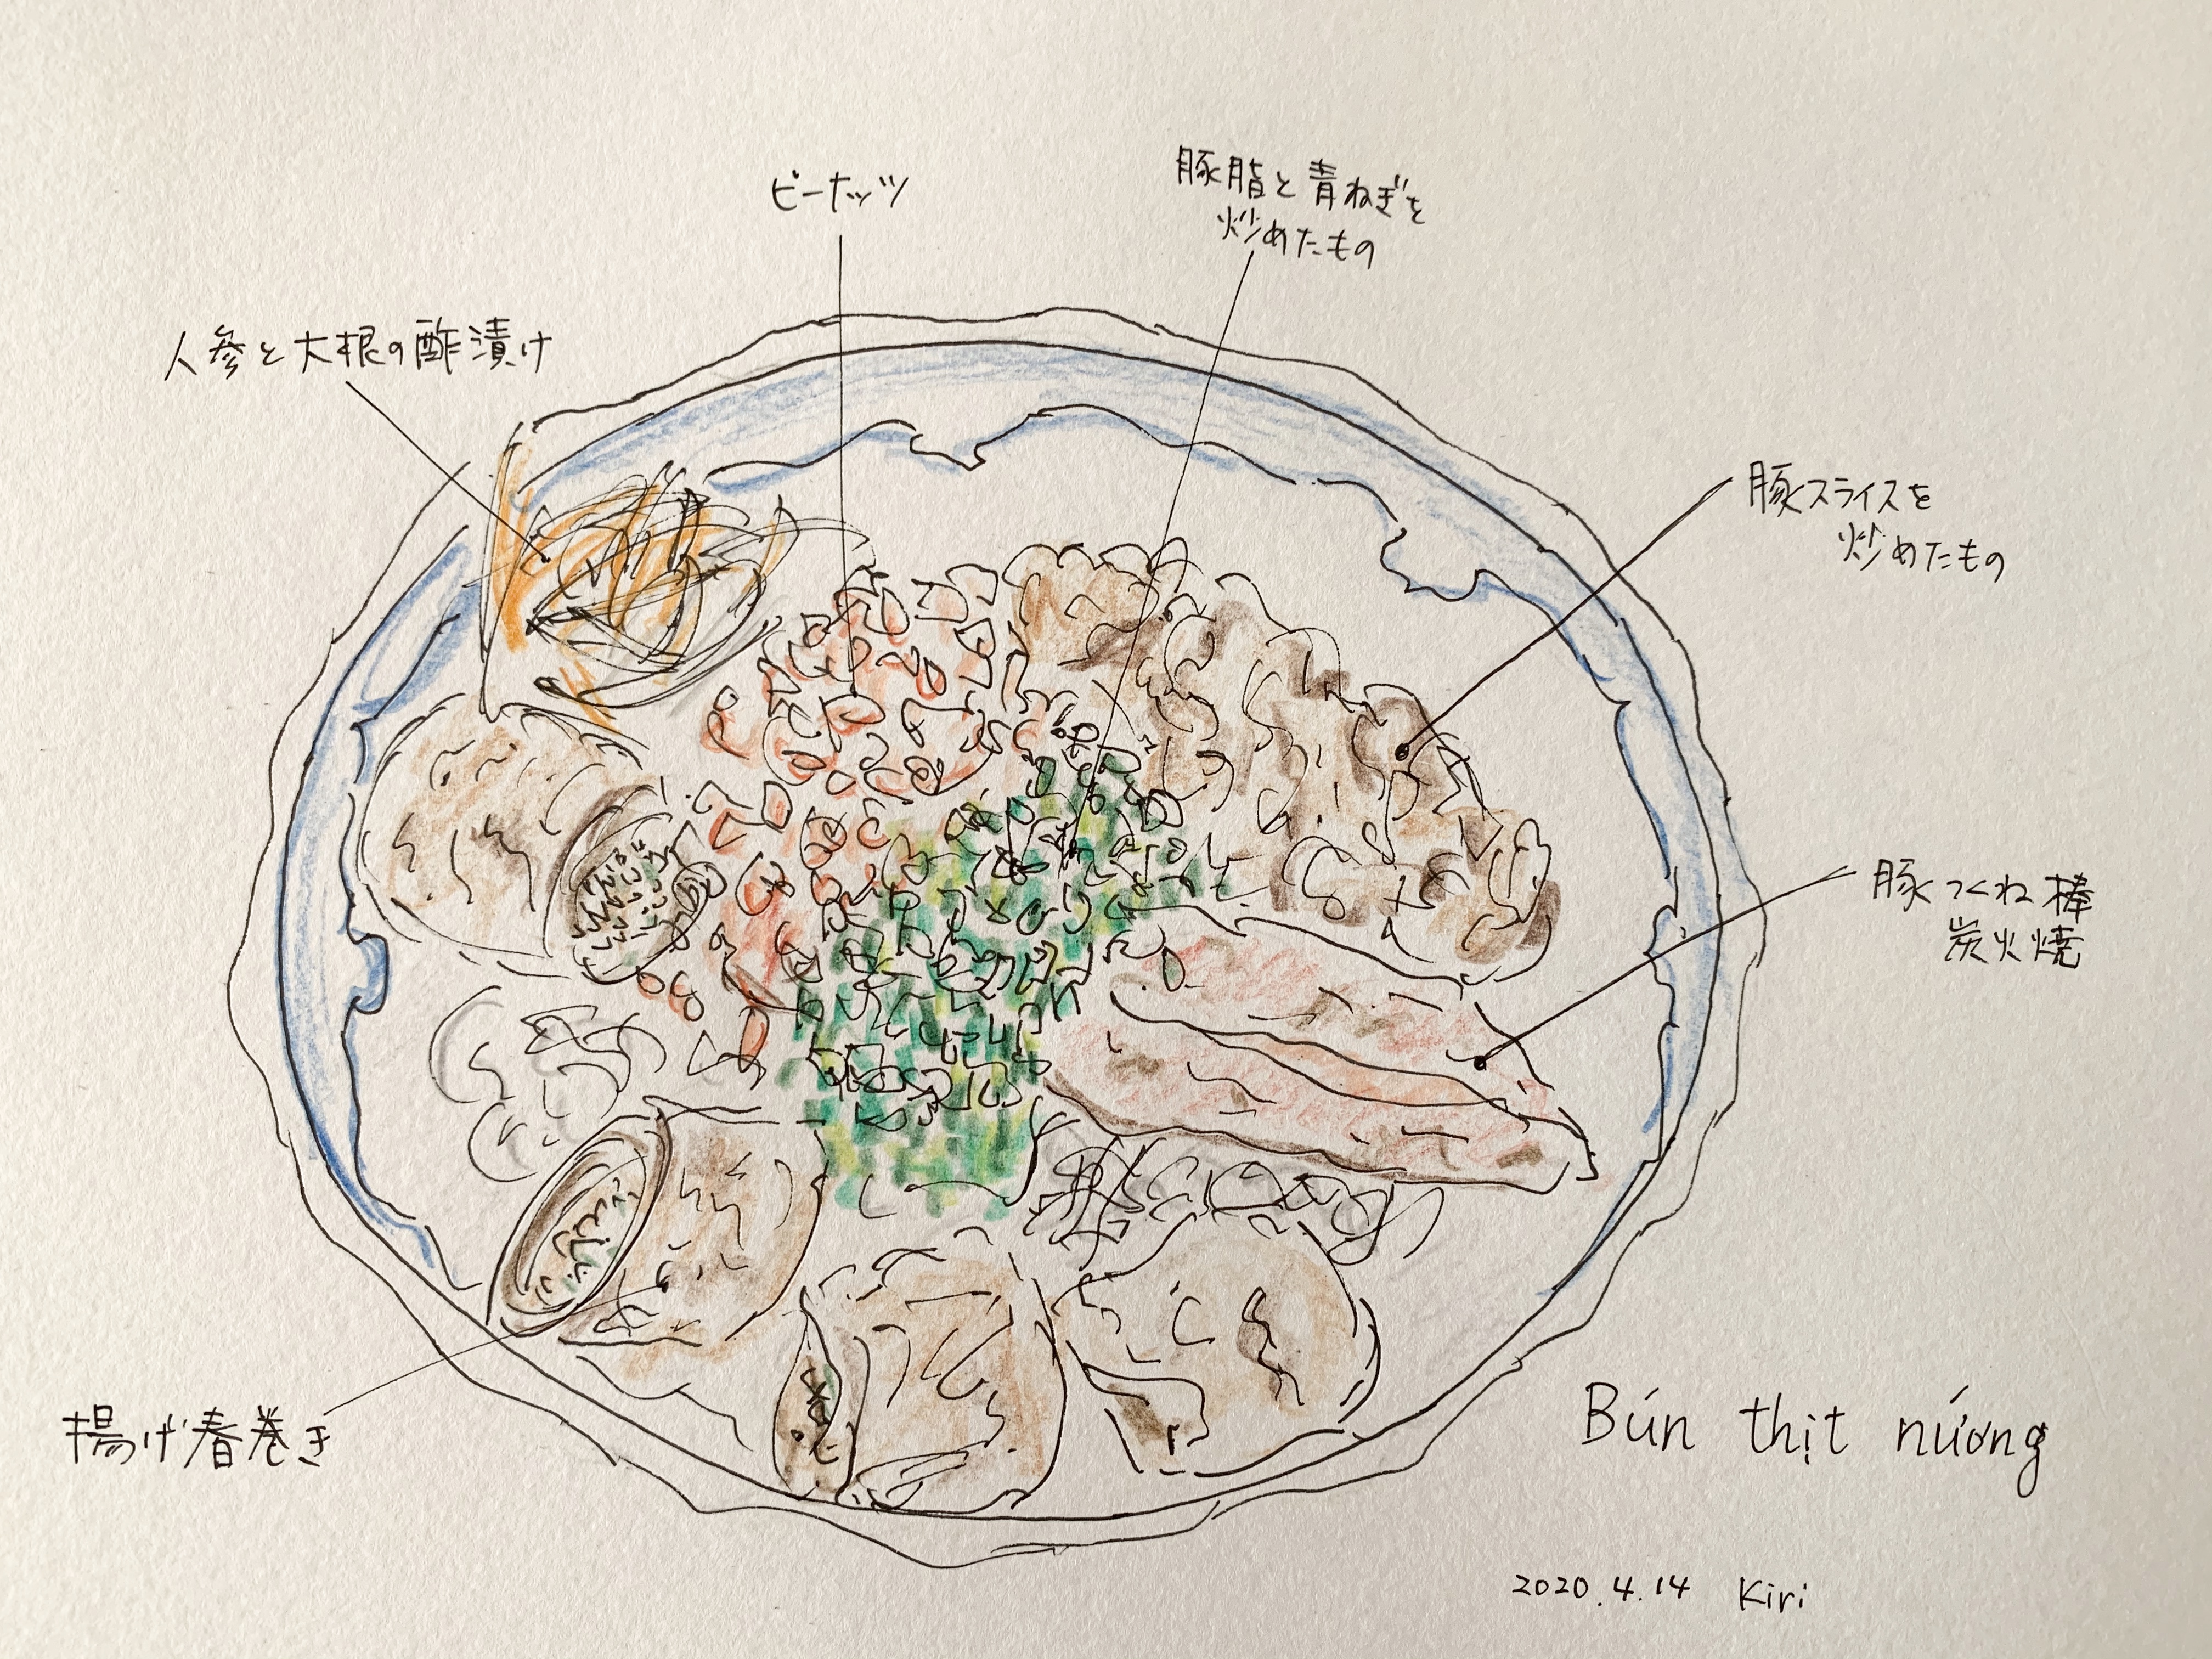 ピーナッツ
豚脂と青ねぎを
炒めたもの
人参と大根の酢漬け
豚スライスを
炒めたもの
豚つくね棒
炭火焼
揚げ春巻き
Bún thịt nướng
2020.4.14 Kiri